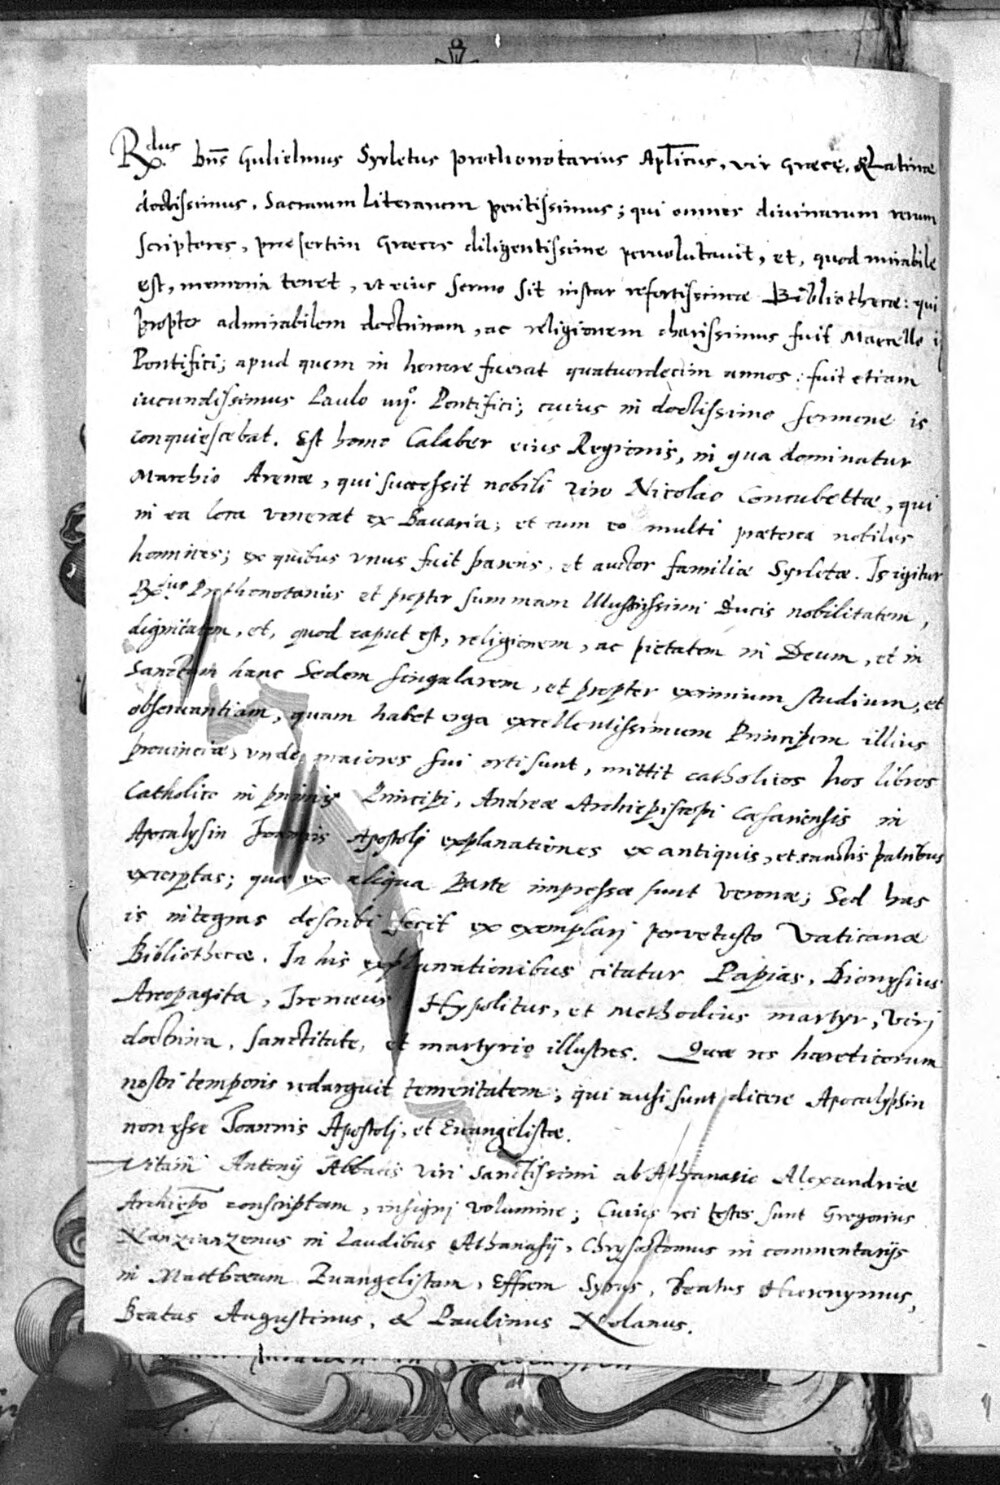 R.dus Dns Gulielmus Syrletus prothonotarius Aplicus, vir Graece, & Latinae
doctissimus, Sacrarum literarum peritissimus; qui omnes divinarum rerum
scriptores, praesertim Graecos diligentissime pervolutavit, et, quod mirabile
est, memoria tenet, ut eius sermo sit instar refertissimae Bibliothecae: qui
propter admirabilem doctrinam, ac religionem charissimus fuit Marcello ij
Pontifici; apud quem in honore fuerat quatuordecim annos: fuit etiam
iucundissimus Paulo iiij. Pontifici; cuius in doctissimo sermone is
conquiescebat. Est homo Calaber eius Regionis, in qua dominatur
Marchio Arenae, qui successit nobili viro Nicolao Concubettae, qui
in ea loca venerat ex Bavaria; et cum eo multi praeterea nobiles
homines; ex quibus unus fuit parens, et auctor familiae Syrletae. Is igitur
R.dus Prothonotarius et propter summam Illustrissimi Ducis nobilitatem,
dignitatem, et, quod caput est, religionem, ac pietatem in Deum, et in
Sanctam hanc Sedem singularem, et propter eximium studium, et
observantiam, quam habet erga excellentissimum Principem illius
provinciae, unde maiores sui orti sunt, mittit catholicos hos libros
Catholico in primis Principi, Andreae Archiepiscopi Caesariensis in
Apocalysin Joannis Apostolj explanationes ex antiquis, et sanctis patribus
excerptas; quae ex aliqua Parte impressae sunt veronae; Sed has
is integras describi fecit ex exemplarj pervetusto Vaticanae
Bibliothecae. In his explanationibus citatur Papias, Dionysius
Areopagita, Irenaeus Hypolitus, et Methodius martyr, Virj
doctrina, sanctitate, et martyrio illustres. Quae res haereticorum
nostri temporis redarguit temeritatem; qui ausi sunt dicere Apocalypsin
non esse Joannis Apostolj, et Evangelistae.
Vitam Antonij Abbatis viri sanctissimi ab Athanasio Alexandriae
Archiepo conscriptam, insignj volumine; Cuius rei testes sunt Gregorius
Nanzianzenus in Laudibus Athanasij, Chrysostomus in commentarijs
in Matthaeum Evangelistam, Effrem Syrus, Beatus Hieronymus,
Beatus Augustinus, & Paulinus Nolanus.